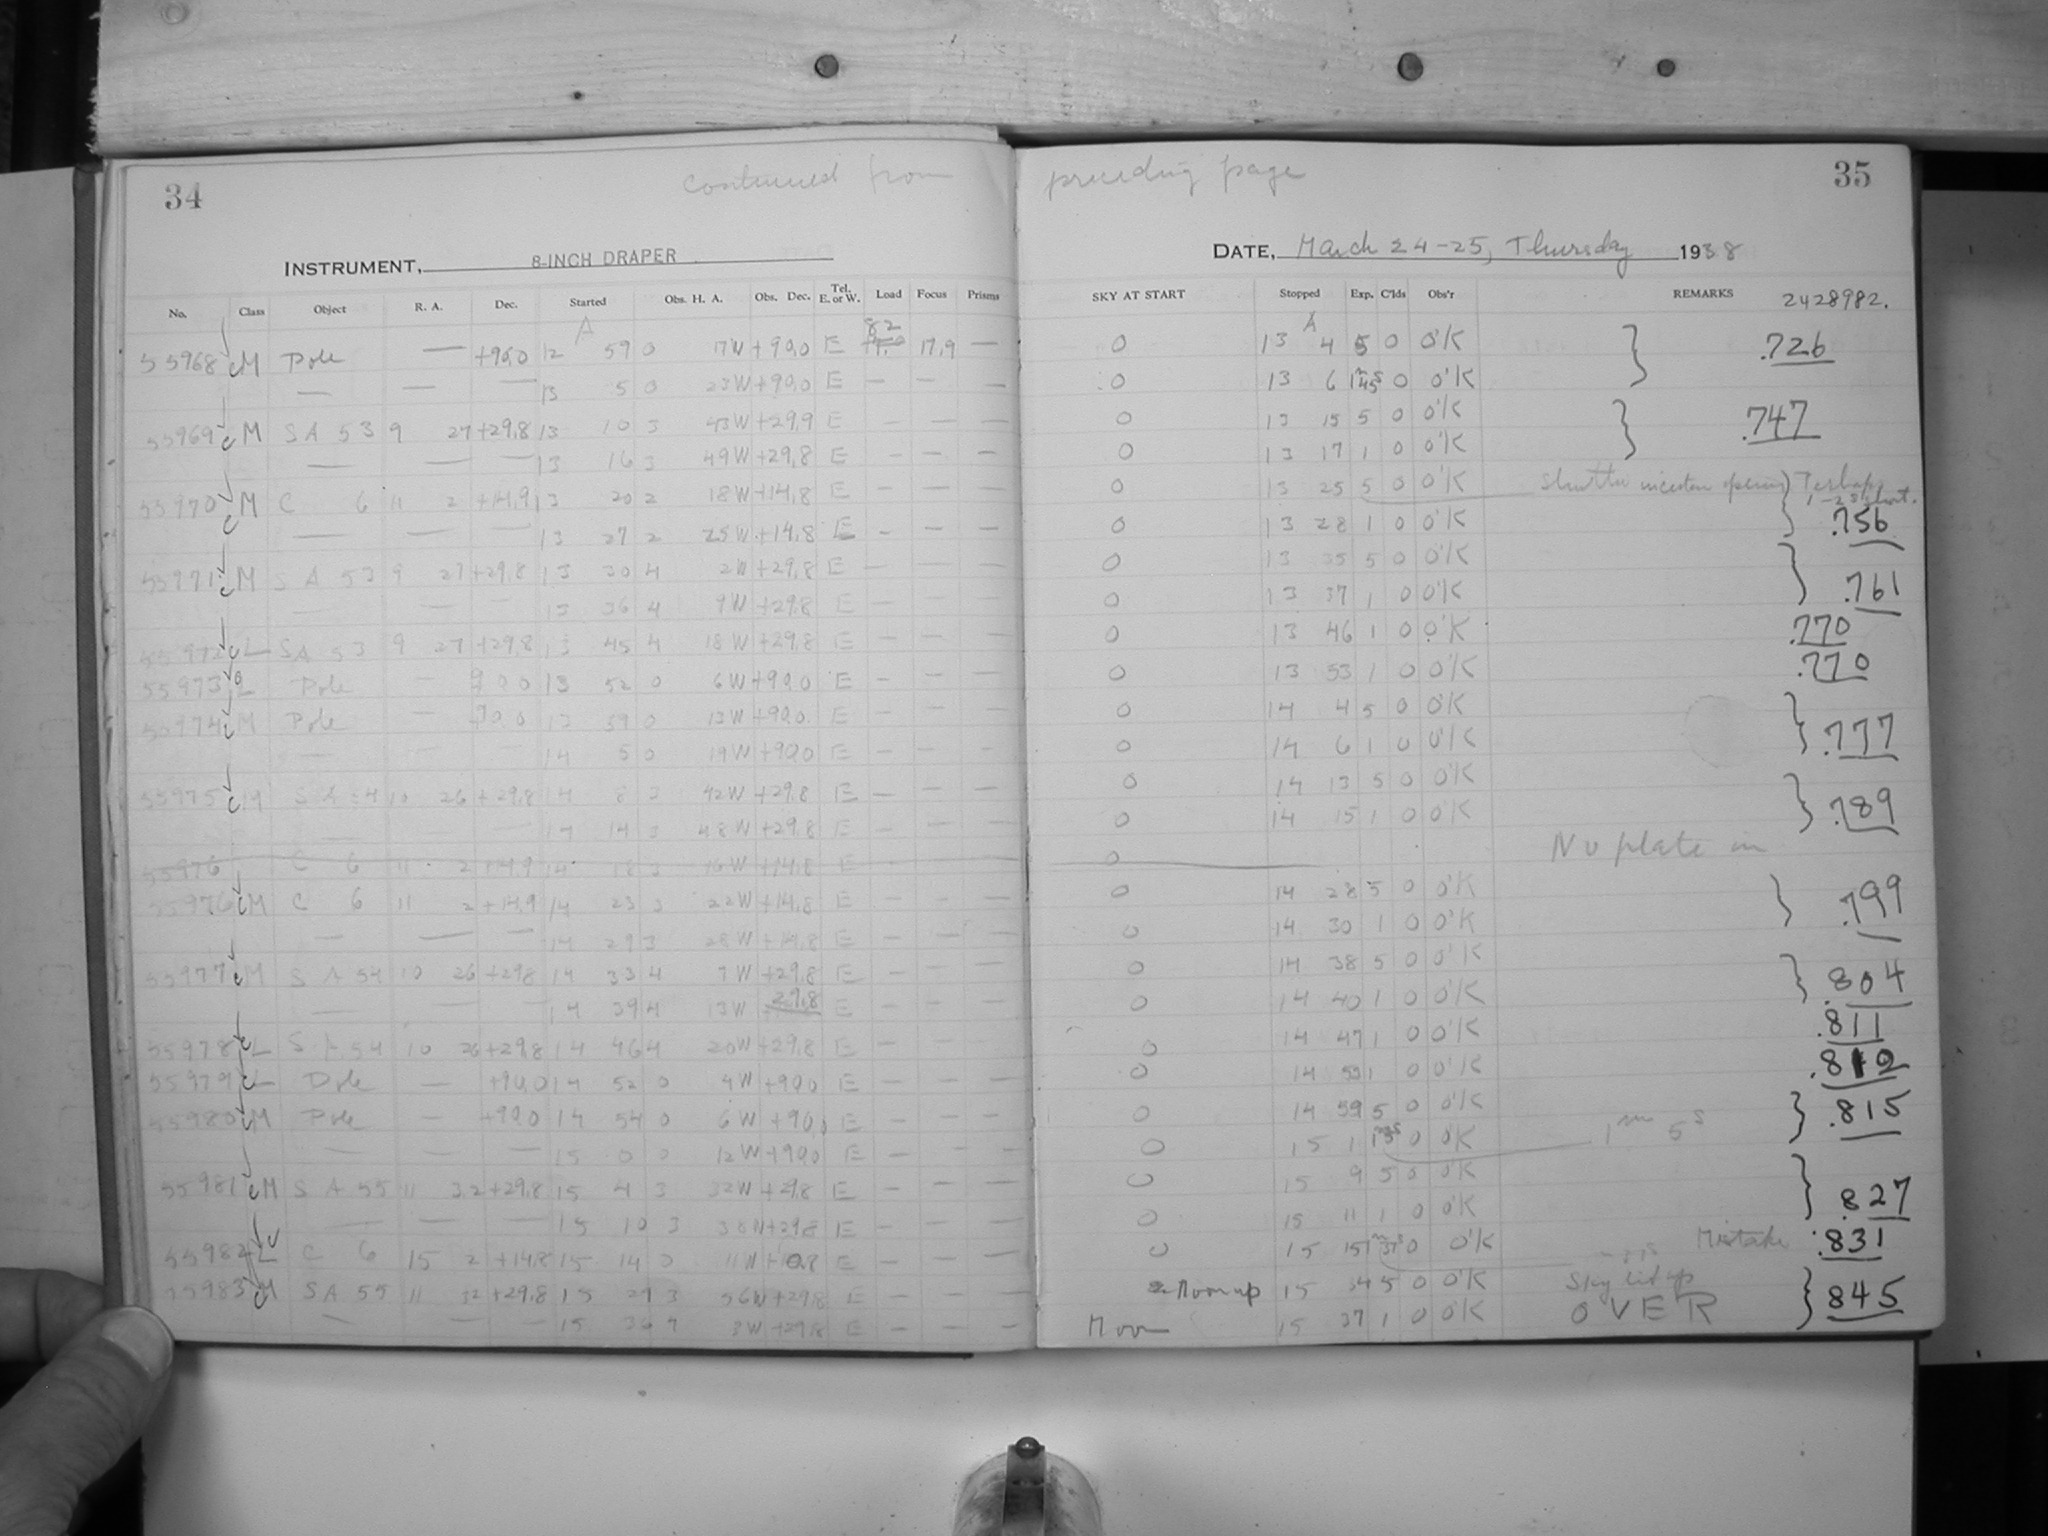 34 continued from preceding page 35
INSTRUMENT, 8-INCH DRAPER DATE, March 24-25, Thursday 1938
No. Class Object R. A. Dec. Started Obs. H. A. Obs. Dec. Tel. E. or W. Load Focus Prisms SKY AT START Stopped Exp. C'lds Obs'r REMARKS 2428982.
A 82 A
55968 M Pole — +90,0 12 59 0 17W +90,0 E 17,9 — O 13 4 5 0 O'K } .726
— — — 13 5 0 23W +90,0 E — — — O 13 6 1m45s 0 O'K
55969 M SA 53 9 27 +29,8 13 10 3 43W +29,9 E — — — O 13 15 5 0 O'K } .747
— — — 13 16 3 49W +29,8 E — — — O 13 17 1 0 O'K
55970 M C 6 11 2 +14,9 13 20 2 18W +14,8 E — — — O 13 25 5 0 O'K Shutter opening Perhaps
— — — 13 27 2 25W +14,8 E — — — O 13 28 1 0 O'K } .756
55971 M SA 53 9 27 +29,8 13 30 4 2W +29,8 E — — — O 13 35 5 0 O'K } .761
— — — 13 36 4 9W +29,8 E — — — O 13 37 1 0 O'K
55972 L SA 53 9 27 +29,8 13 45 4 18W +29,8 E — — — O 13 46 1 0 O'K .770
55973 L Pole — 90,0 13 52 0 6W +90,0 E — — — O 13 53 1 0 O'K .770
55974 M Pole — 90,0 13 59 0 13W +90,0 E — — — O 14 4 5 0 O'K } .777
— 14 5 0 19W +90,0 E — — — O 14 6 1 0 O'K
55975 M SA 54 10 26 +29,8 14 8 3 42W +29,8 E — — — O 14 13 5 0 O'K } .789
— — 14 14 3 48W +29,8 E — — — O 14 15 1 0 O'K
55976 C 6 11 2 +14,9 14 18 3 16W +14,8 E O No plate in
55976 M C 6 11 2 +14,9 14 23 3 22W +14,8 E — — — O 14 28 5 0 O'K } .799
— — — 14 29 3 28W +14,8 E — — — O 14 30 1 0 O'K
55977 M SA 54 10 26 +29,8 14 33 4 7W +29,8 E — — — O 14 38 5 0 O'K } .804
— — — 14 39 4 13W 29,8 E — — — O 14 40 1 0 O'K
55978 L SA 54 10 26 +29,8 14 46 4 20W +29,8 E — — — O 14 47 1 0 O'K .811
55979 L Pole — +90,0 14 52 0 4W +90,0 E — — — O 14 53 1 0 O'K
55980 M Pole — +90,0 14 54 0 6W +90,0 E — — — O 14 59 5 0 O'K } .815
— — — 15 0 0 12W +90,0 E — — — O 15 1 0 O'K 1m 5s
55981 M SA 55 11 32 +29,8 15 4 3 32W +29,8 E — — — O 15 9 5 0 O'K } .827
— — — 15 10 3 +29,8 E — — — O 15 11 1 0 O'K
55982 L C 6 15 2 +14,8 15 14 0 11W E — — — O 15 15 0 O'K Mistake .831
55983 M SA 55 11 32 +29,8 15 29 3 56W +29,8 E — — — Moon up 15 34 5 0 O'K Sky lit up } .845
— — — 15 36 3W +29,8 E — — — Moon 15 37 1 0 O'K OVER